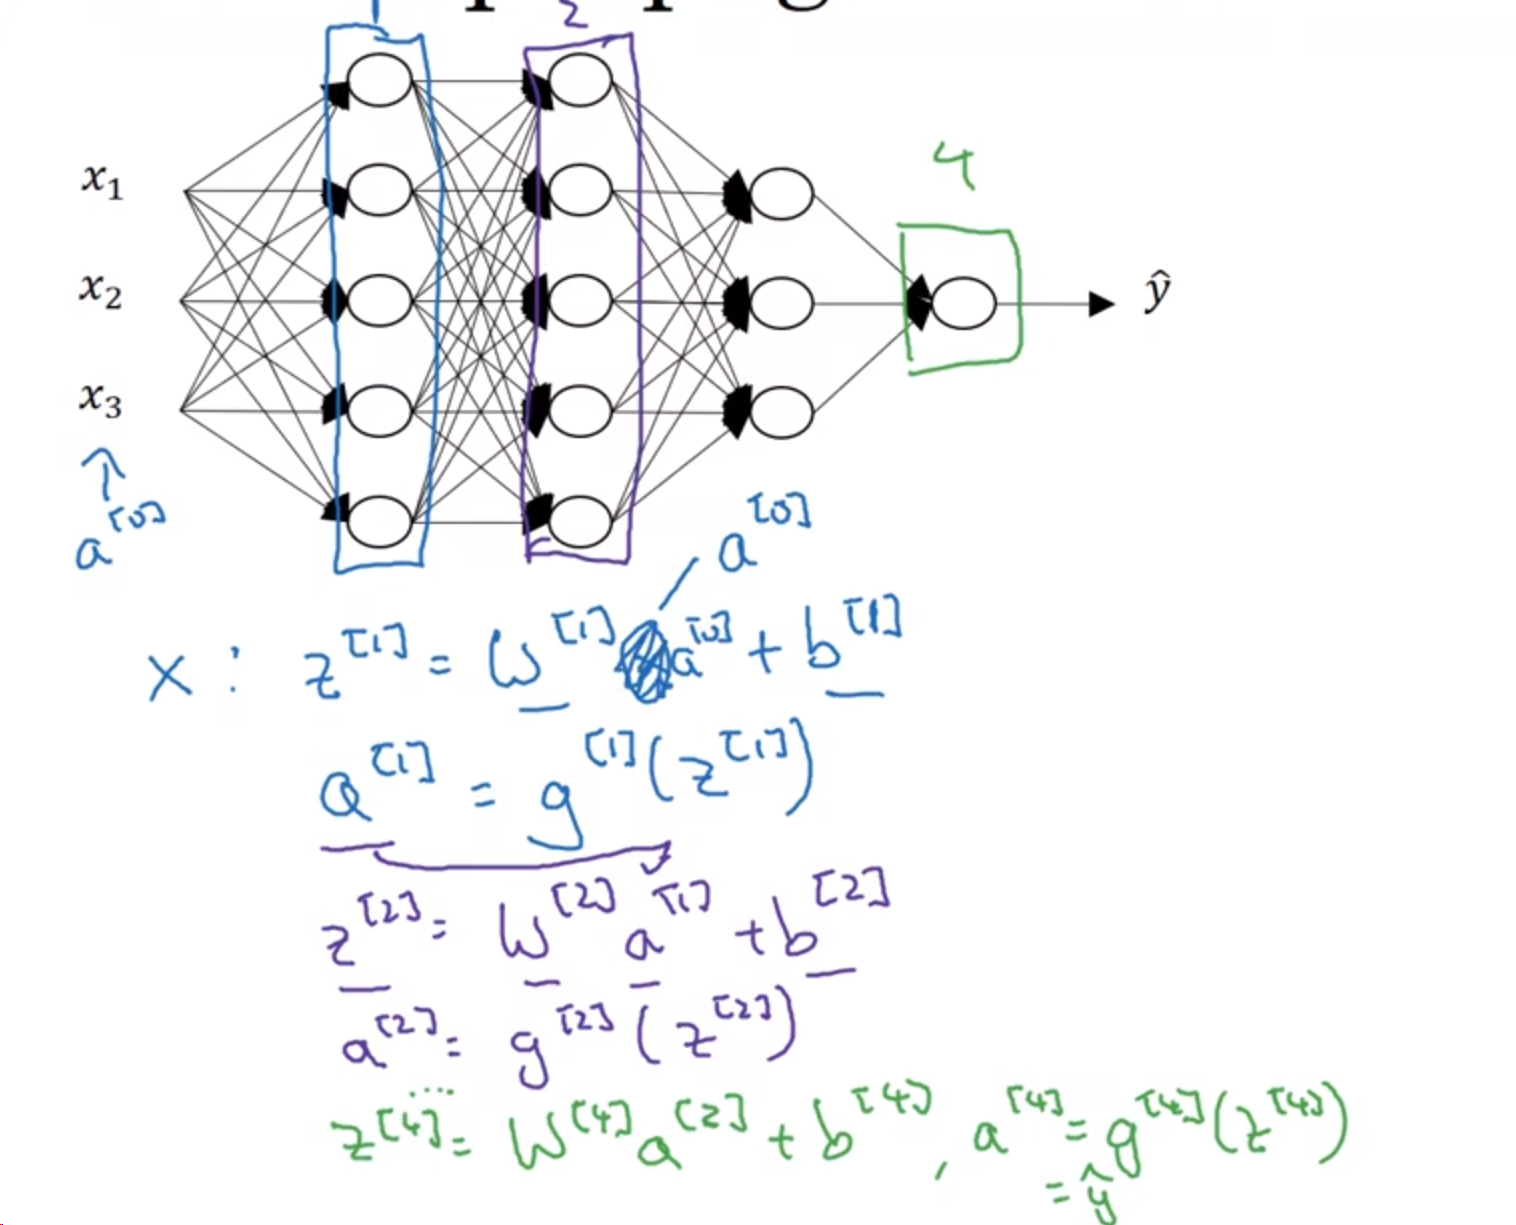 1 2
4
x₁
x₂
x₃
ŷ
a^[0]
a^[0]
X : z^[1] = W^[1] a^[0] + b^[1]
a^[1] = g^[1](z^[1])
z^[2] = W^[2] a^[1] + b^[2]
a^[2] = g^[2](z^[2])
...
z^[4] = W^[4] a^[2] + b^[4], a^[4] = g^[4](z^[4])
= ŷ